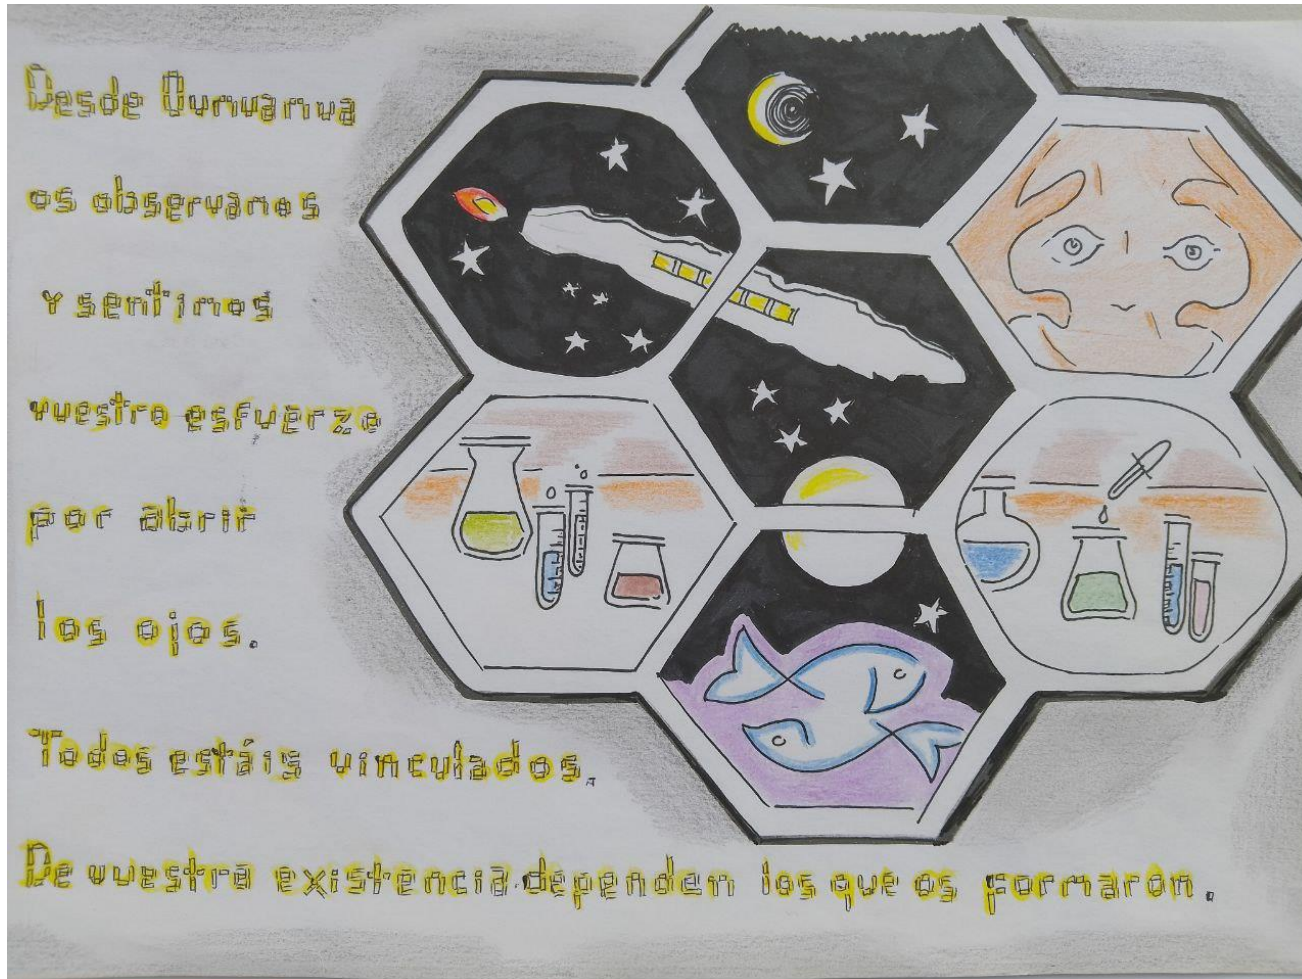 Desde Ounvanua
os observamos
Y sentimos
vuestro esfuerzo
por abrir
los ojos.
Todos estáis vinculados.
De vuestra existencia dependen los que os formaron.